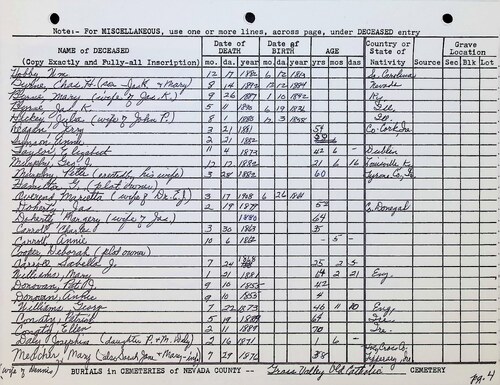 Note:- For MISCELLANEOUS, use one or more lines, across page, under DECEASED entry
NAME of DECEASED
(Copy Exactly and Fully-all Inscription)
Date of DEATH
mo. da. year
Date of BIRTH
mo. da. year
AGE
yrs mos das
Country or State of Nativity
Grave Location
Source Sec Blk Lot
Hobby, Wm 12 17 1882 6 12 1814 So. Carolina
Chas. H. (son Jas K & Mary) 8 14 1892 12 12 1884 Nevada
Mary (wife of Jas. K.) 8 26 1887 1 10 1842 Ky
Jas. K. 5 11 1890 6 19 1836 Ill.
Hickey, Julia (wife of John P.) 8 1 1885 17 3 1858
Jerry 3 21 1881 59 Co. Cork Ire
Annie 2 21 1882
Taylor, Elizabeth 11 4 1873 42 6 - Dublin
Murphy, Geo. J. 17 17 1892 21 6 16 Louisville K
Murphy, Peter (erected by his wife) 3 28 1882 60 Tyrone Co, Ire
Hamilton, G. (plot owner)
Overend, Marietta (wife of Dr. E. J.) 3 17 1908 6 26 1841
Doherty, Jas 2 19 1877 52 C. Donegal
Doherty, Margery (wife of Jas) 1880 64
Carroll, Charles 3 30 1863 35
Carroll, Annie 10 6 1862 - 5 -
Cooper, Deborah (plot owner)
Isabella J. 7 24 1868 25 2 5
Williams, Mary 1 21 1881 64 2 21 Eng.
Donovan, Pat. J. 9 10 1855 42
Donovan, Annie 9 10 1855 4
Williams, George 7 22 1873 46 11 10 Eng.
Patrick 5 19 64 Ire.
Ellen 2 11 1889 70 Ire.
Daly, Josephine (daughter P. + M. Daly) 2 16 1871 1 6 -
Mary (also Sarah Jane & Mary-inf) 7 29 1876 38
(wife of Dennis)
BURIALS in CEMETERIES of NEVADA COUNTY -- Grass Valley Old Catholic CEMETERY
pg. 4